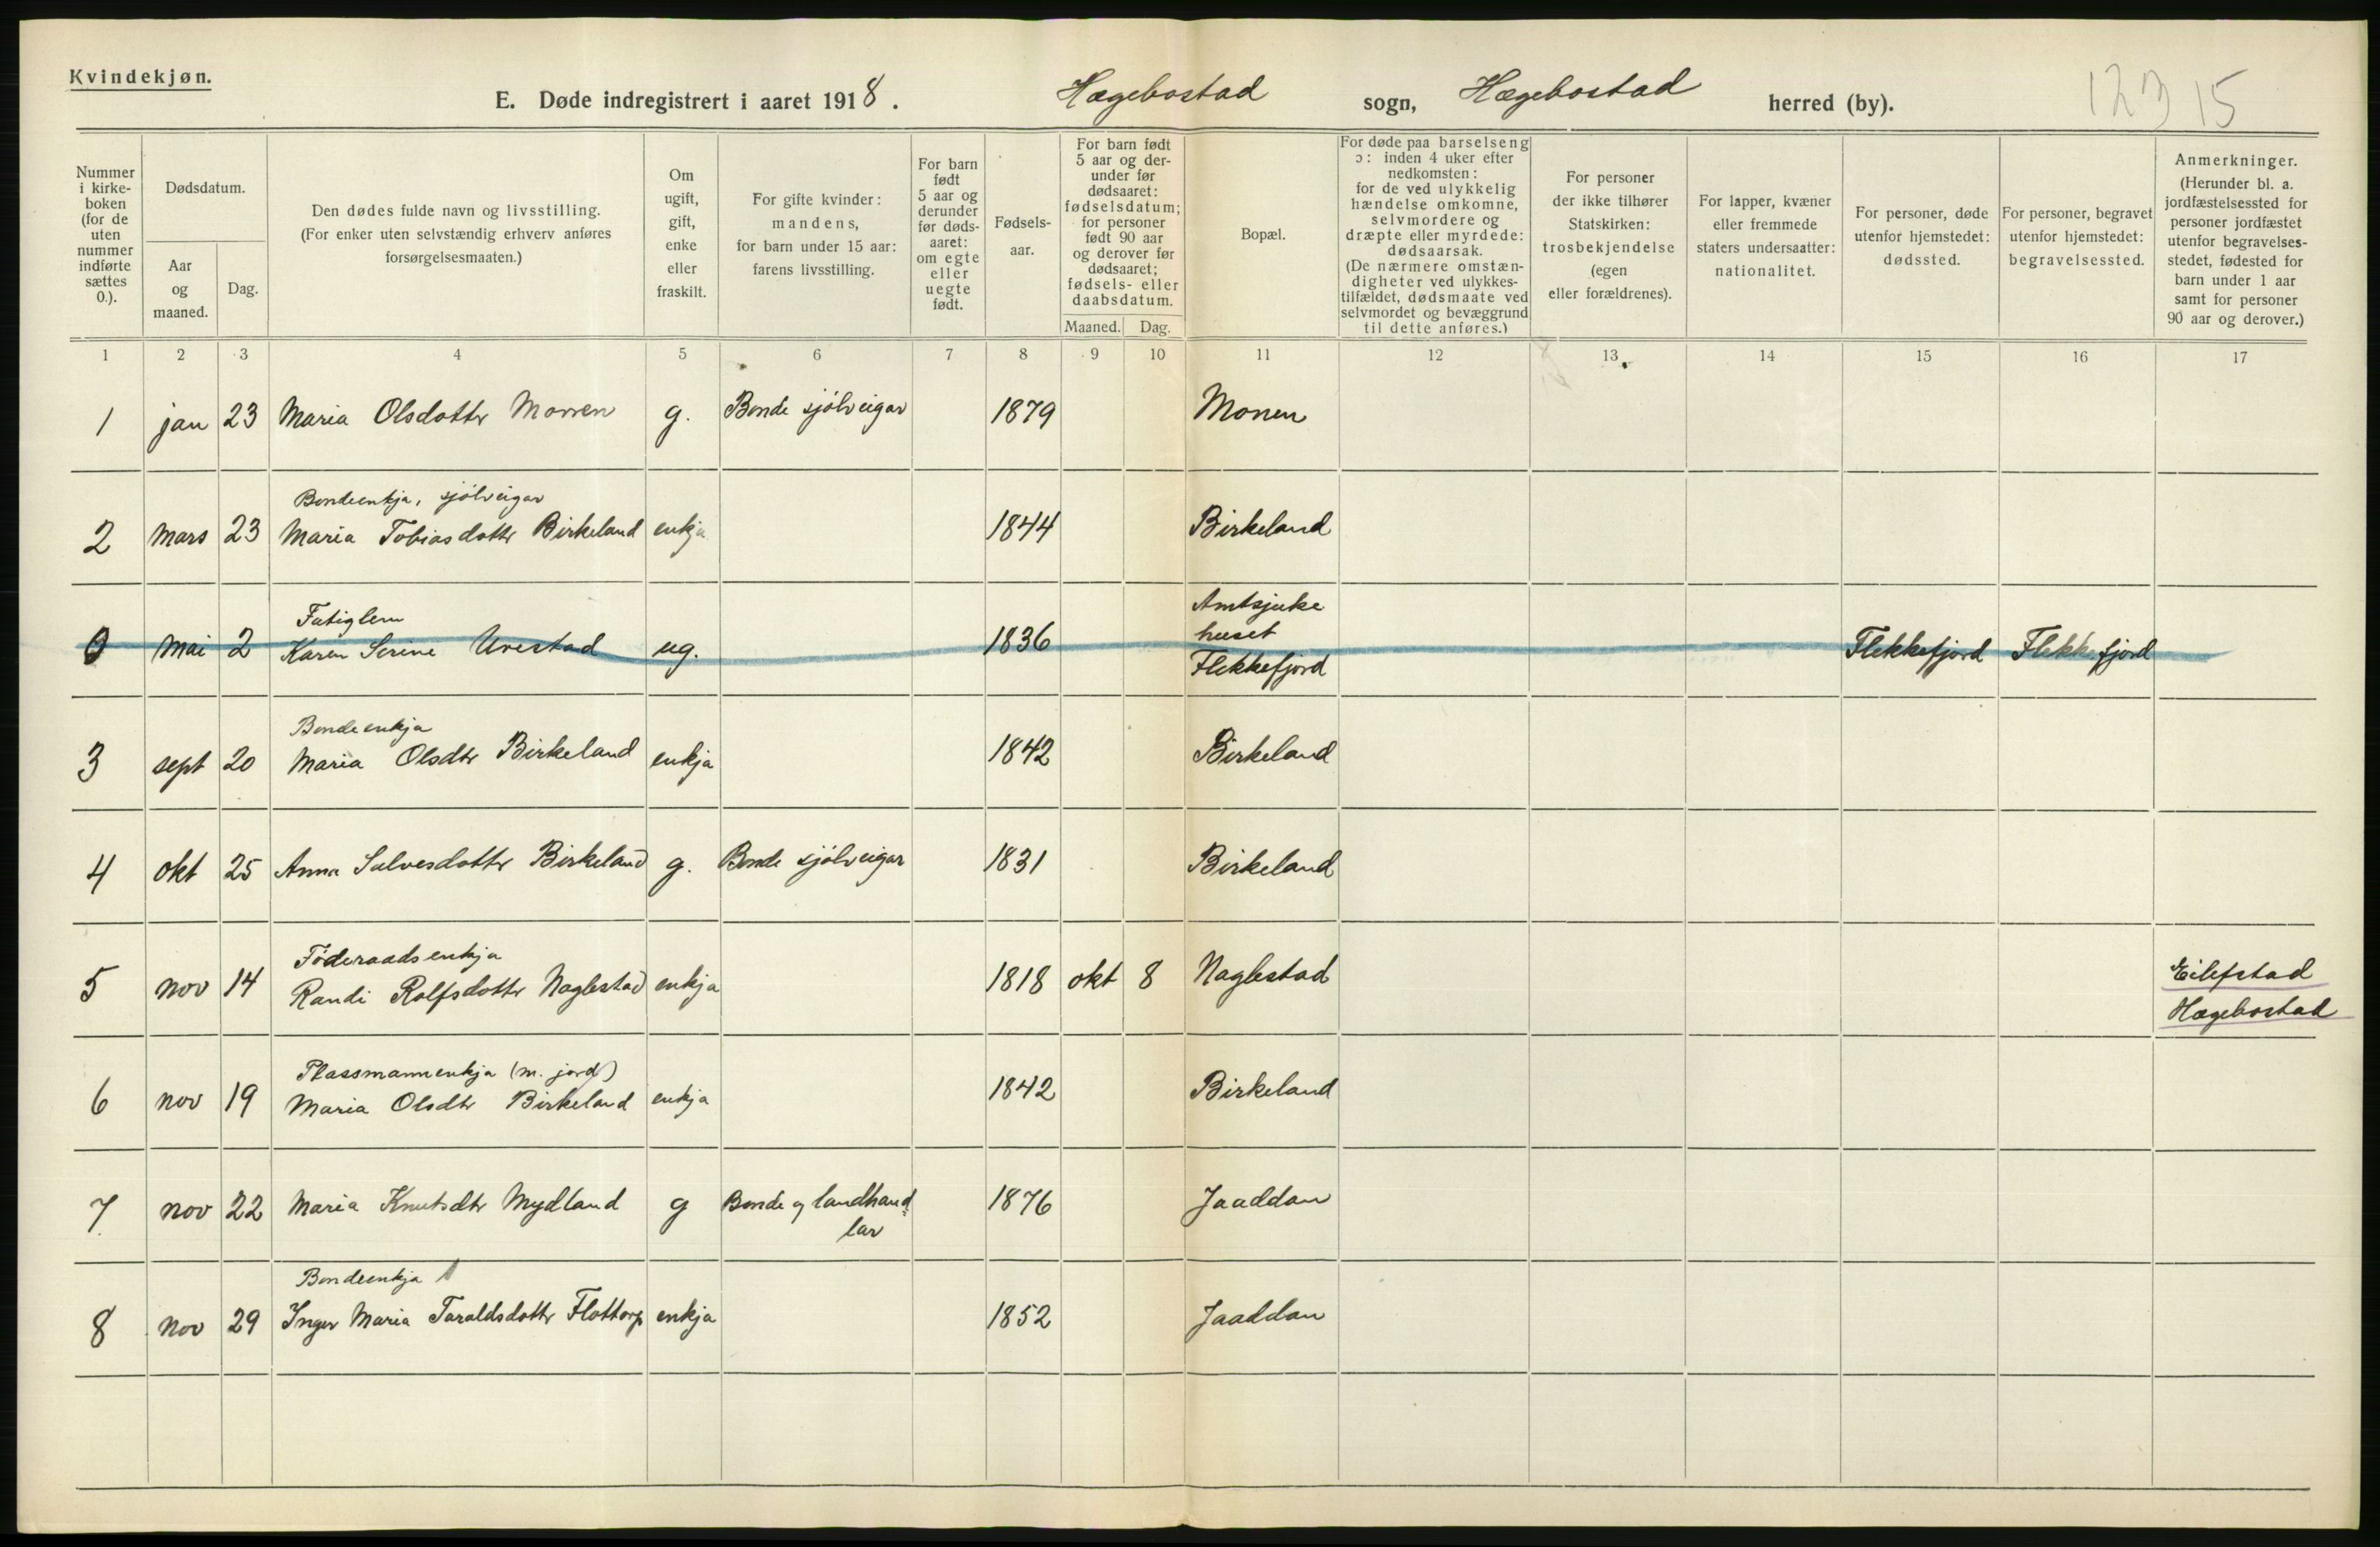 Kvindekjøn.
E. Døde indregistrert i aaret 1918. Hægebostad sogn, Hægebostad herred (by). 123 15
Nummer
i kirke-
boken
(for de
uten
nummer
indførte
sættes
0.).
Dødsdatum.
Aar
og
maaned.
Dag.
Den dødes fulde navn og livsstilling.
(For enker uten selvstændig erhverv anføres
forsørgelsesmaaten.)
Om
ugift,
gift,
enke
eller
fraskilt.
For gifte kvinder:
mandens,
for barn under 15 aar:
farens livsstilling.
For barn
født
5 aar og
derunder
før døds-
aaret:
om egte
eller
uegte
født.
Fødsels-
aar.
For barn født
5 aar og der-
under før
dødsaaret:
fødselsdatum;
for personer
født 90 aar
og derover før
dødsaaret;
fødsels- eller
daabsdatum.
Maaned. Dag.
Bopæl.
For døde paa barselseng
ɔ: inden 4 uker efter
nedkomsten:
for de ved ulykkelig
hændelse omkomne,
selvmordere og
dræpte eller myrdede:
dødsaarsak.
(De nærmere omstæn-
digheter ved ulykkes-
tilfældet, dødsmaate ved
selvmordet og bevæggrund
til dette anføres.)
For personer
der ikke tilhører
Statskirken:
trosbekjendelse
(egen
eller forældrenes).
For lapper, kvæner
eller fremmede
staters undersaatter:
nationalitet.
For personer, døde
utenfor hjemstedet:
dødssted.
For personer, begravet
utenfor hjemstedet:
begravelsessted.
Anmerkninger.
(Herunder bl. a.
jordfæstelsessted for
personer jordfæstet
utenfor begravelses-
stedet, fødested for
barn under 1 aar
samt for personer
90 aar og derover.)
1 2 3 4 5 6 7 8 9 10 11 12 13 14 15 16 17
1 jan 23 Maria Olsdottr Monen g. Bonde sjölveigar 1879 Monen
Bondeenkja, sjölveigar
2 mars 23 Maria Tobiasdottr Birkeland enkja 1844 Birkeland
Fatiglem
0 mai 2 Karen Serine Urestad ug. 1836 Amtsjuke
huset
Flekkefjord Flekkefjord Flekkefjord
Bondeenkja
3 sept 20 Maria Olsdtr Birkeland enkja 1842 Birkeland
4 okt 25 Anna Salvesdottr Birkeland g. Bonde sjölveigar 1831 Birkeland
Föderaadsenkja
5 nov 14 Randi Rolfsdottr Naglestad enkja 1818 okt 8 Naglestad Eilefstad
Hægebostad
Plassmannenkja (m. jord)
6 nov 19 Maria Olsdtr Birkeland enkja 1842 Birkeland
7 nov 22 Maria Knutsdtr Mydland g Bonde og landhand-
lar 1876 Jaaddan
Bondeenkja
8 nov 29 Inger Maria Taraldsdottr Flottorp enkja 1852 Jaaddan